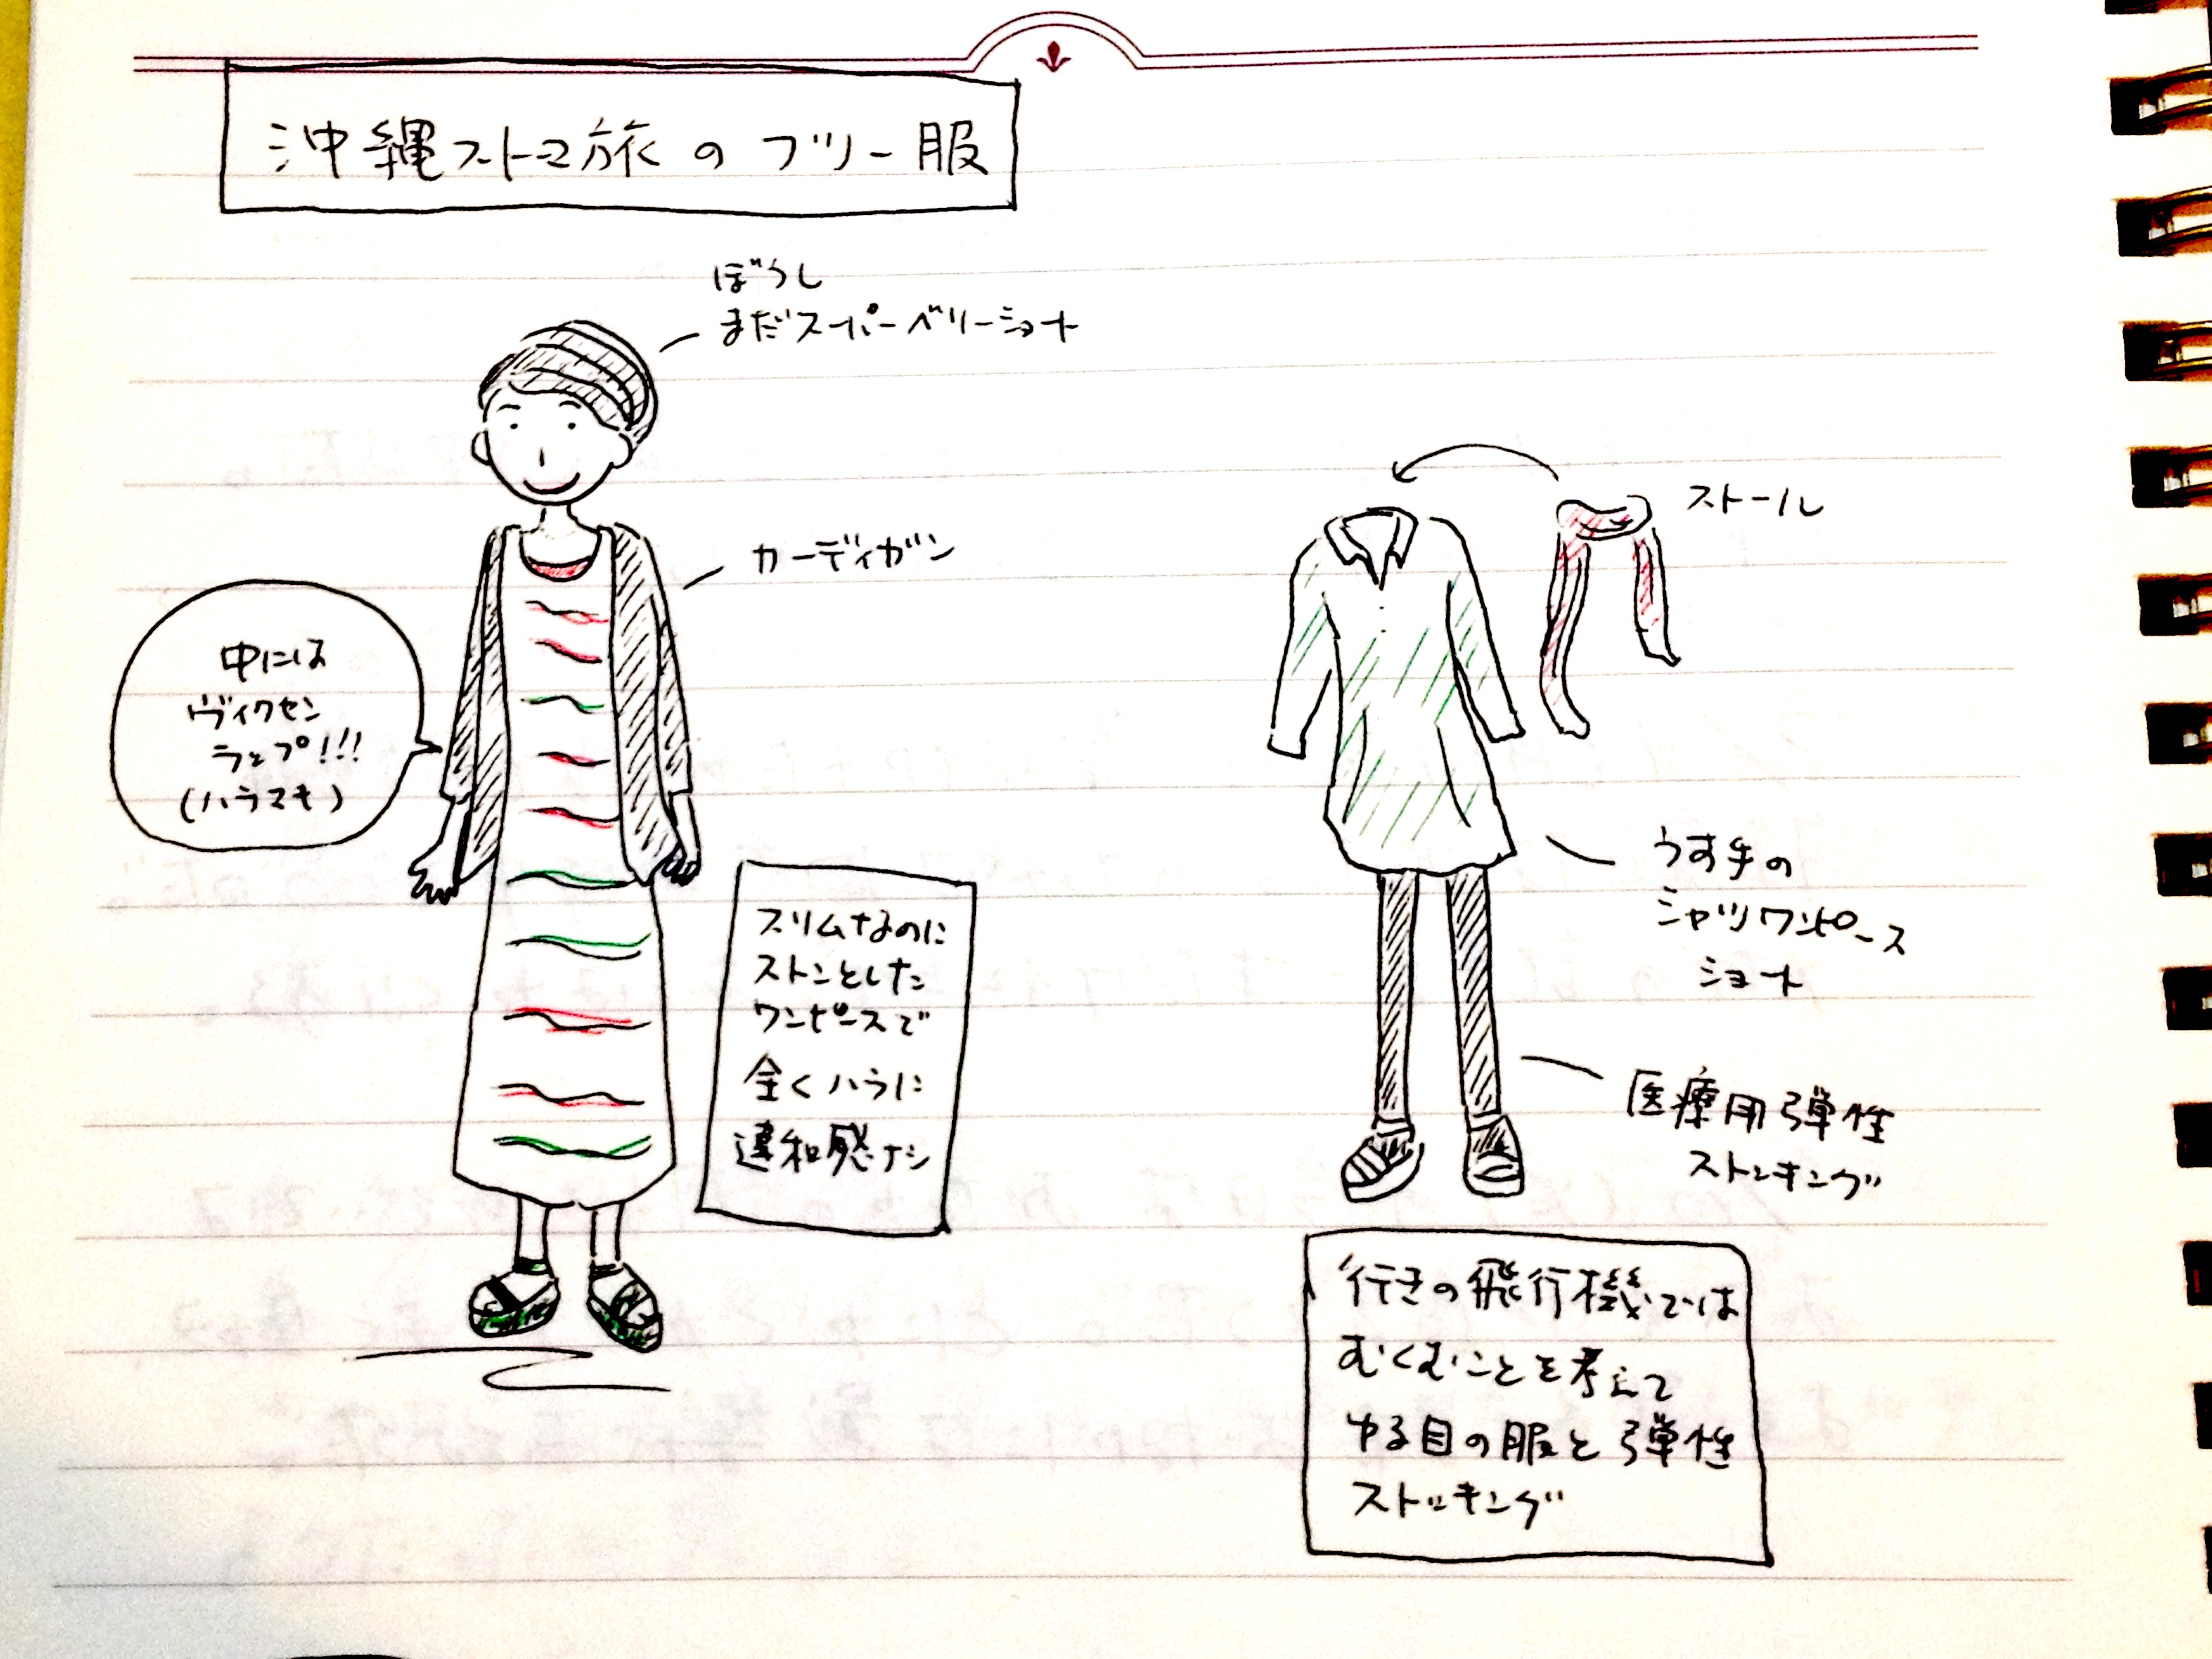 沖縄ストマ旅のフツー服
ぼうし
まだスーパーベリーショート
カーディガン
中には
ヴィクセン
ラップ!!!
(ハラマキ)
スリムなのに
ストンとした
ワンピースで
全くハラに
違和感ナシ
ストール
うす手の
シャツワンピース
ショート
医療用弾性
ストッキング
行きの飛行機では
むくむことを考えて
ゆる目の服と弾性
ストッキング